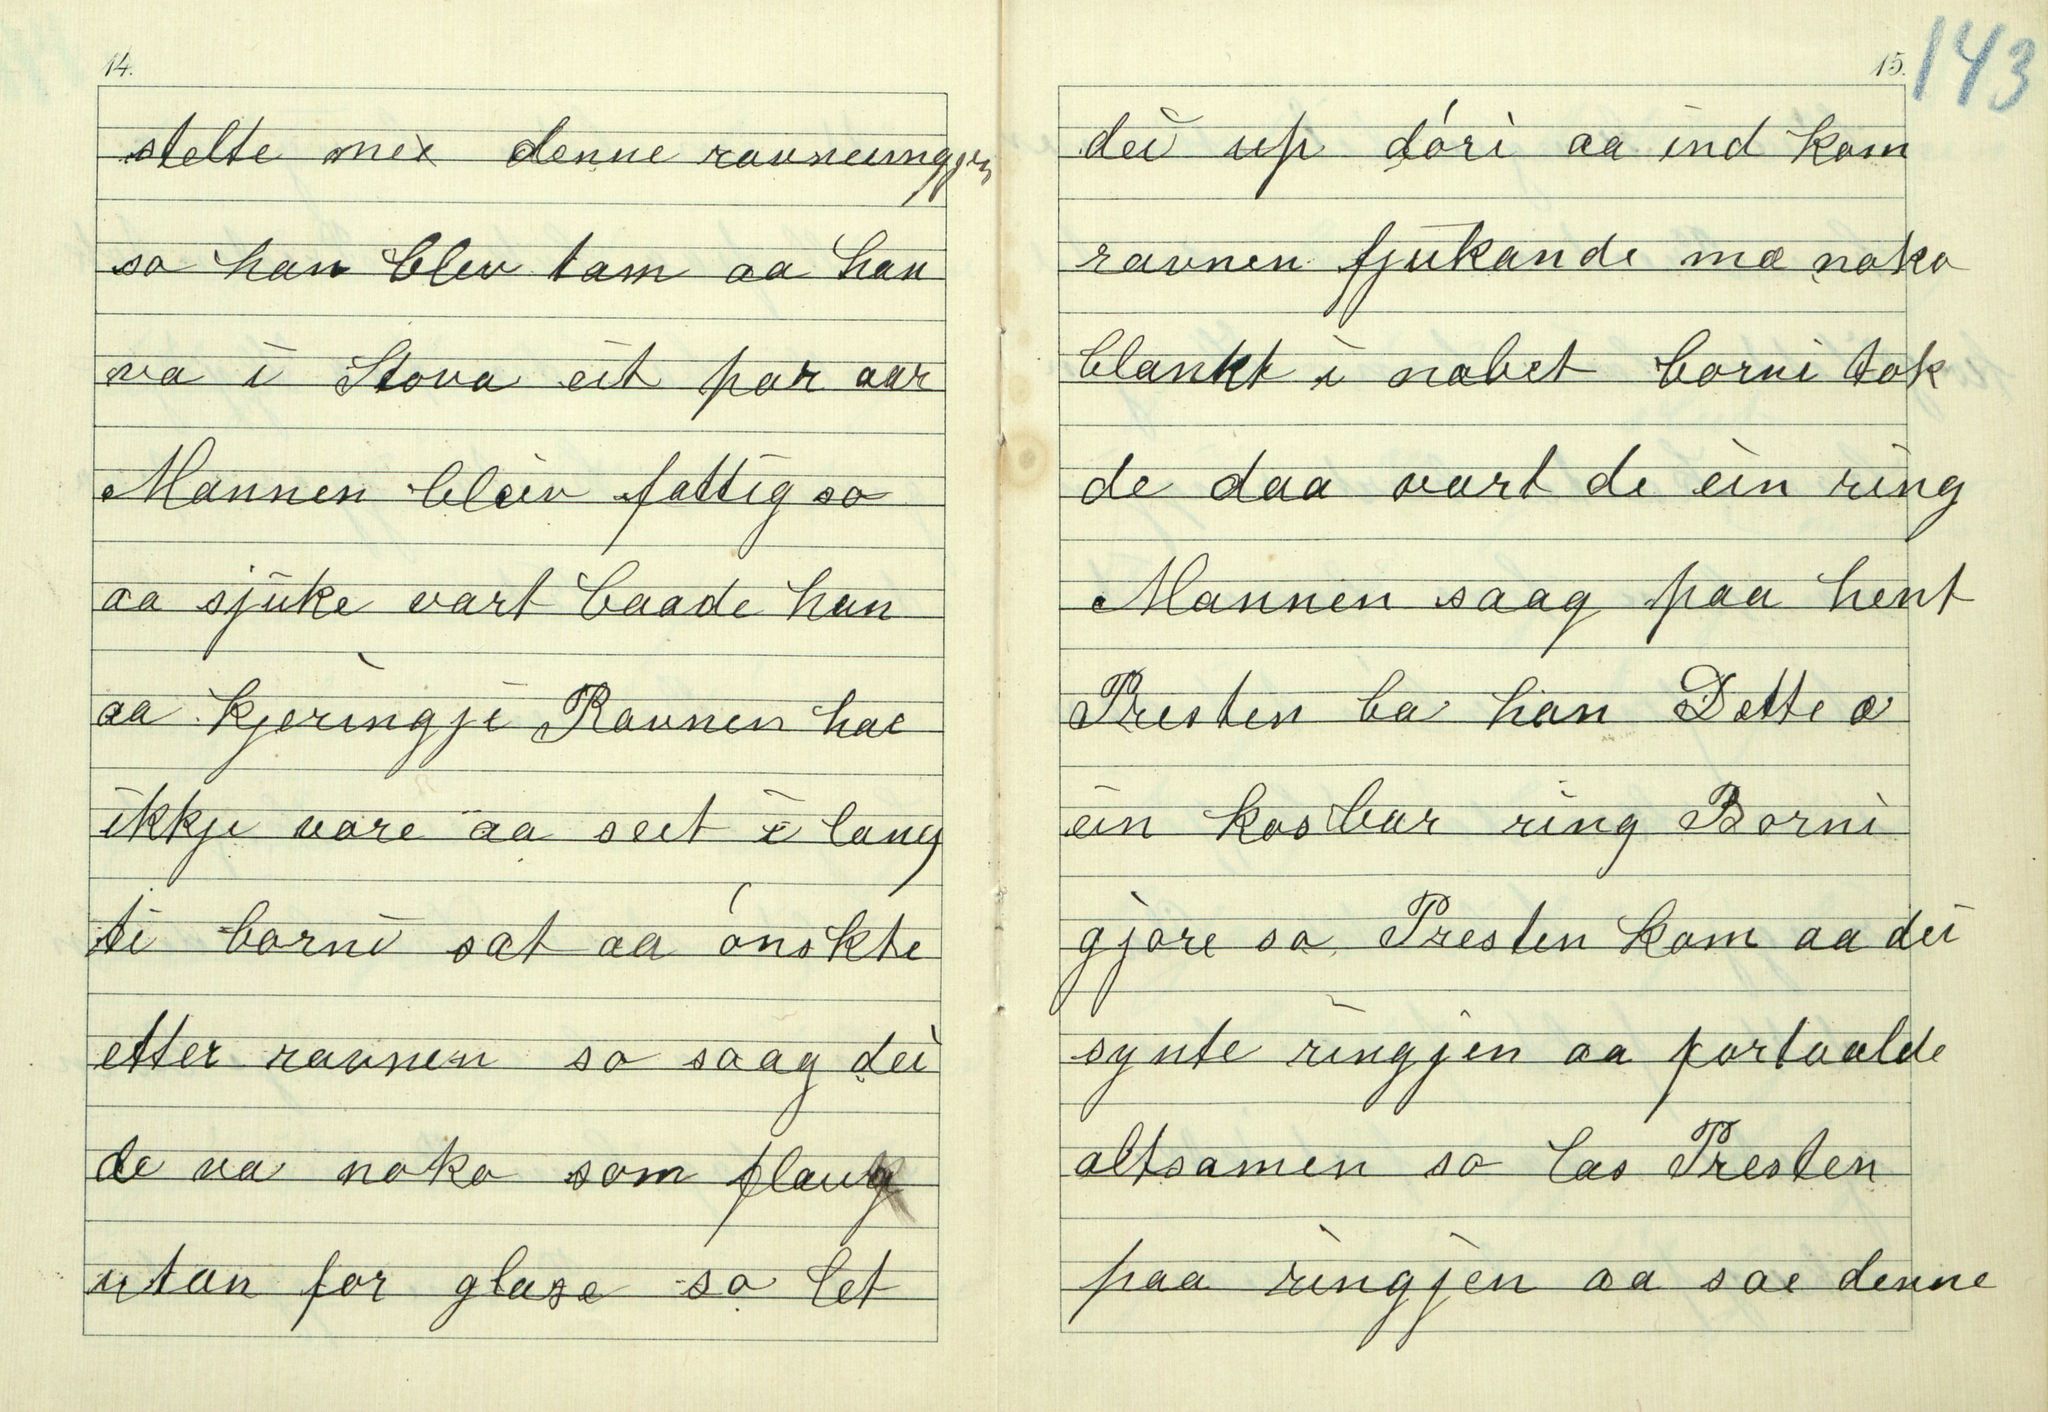 14.
stelte mex denne ravneungjen
so han blev tam aa han
va i Stova eit par aar
Mannen bleiv fattig so
aa sjuke vart baade han
aa kjeringji Ravnen hae
ikkje vore aa seet i lang
ti borni sat aa ónskte
etter ravnen so saag dei
de va noko som flaug
utan for glase so let
15.
143
dei up dóri aa ind kom
ravnen fjukande mæ noko
blankt i nabet borni tok
de daa vart de ein ring
Mannen saag paa hent
Presten ba han Dette æ
ein kosbar ring Borni
gjore so Presten kom aa dei
synte ringjen aa fortaalde
altsamen so las Presten
paa ringjen aa sae denne